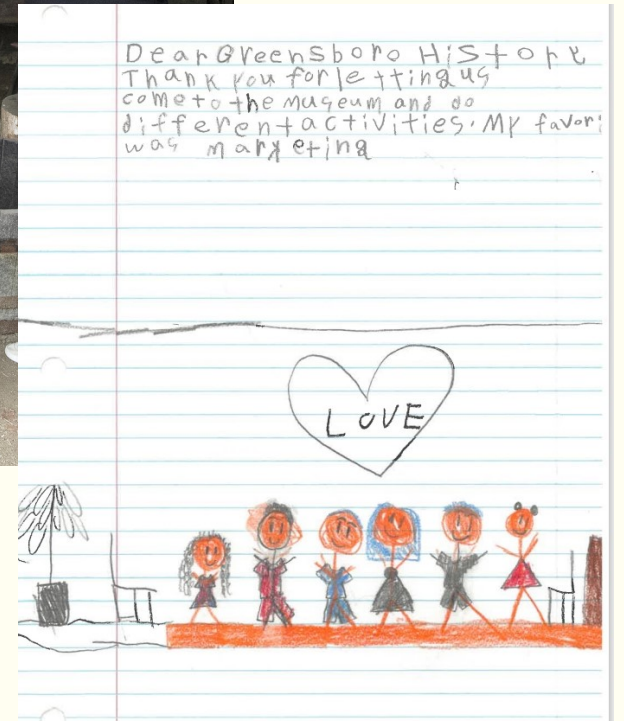 Dear Greensboro History
Thank you for letting us
come to the museum and do
different activities. My favor
was marketing
LOVE